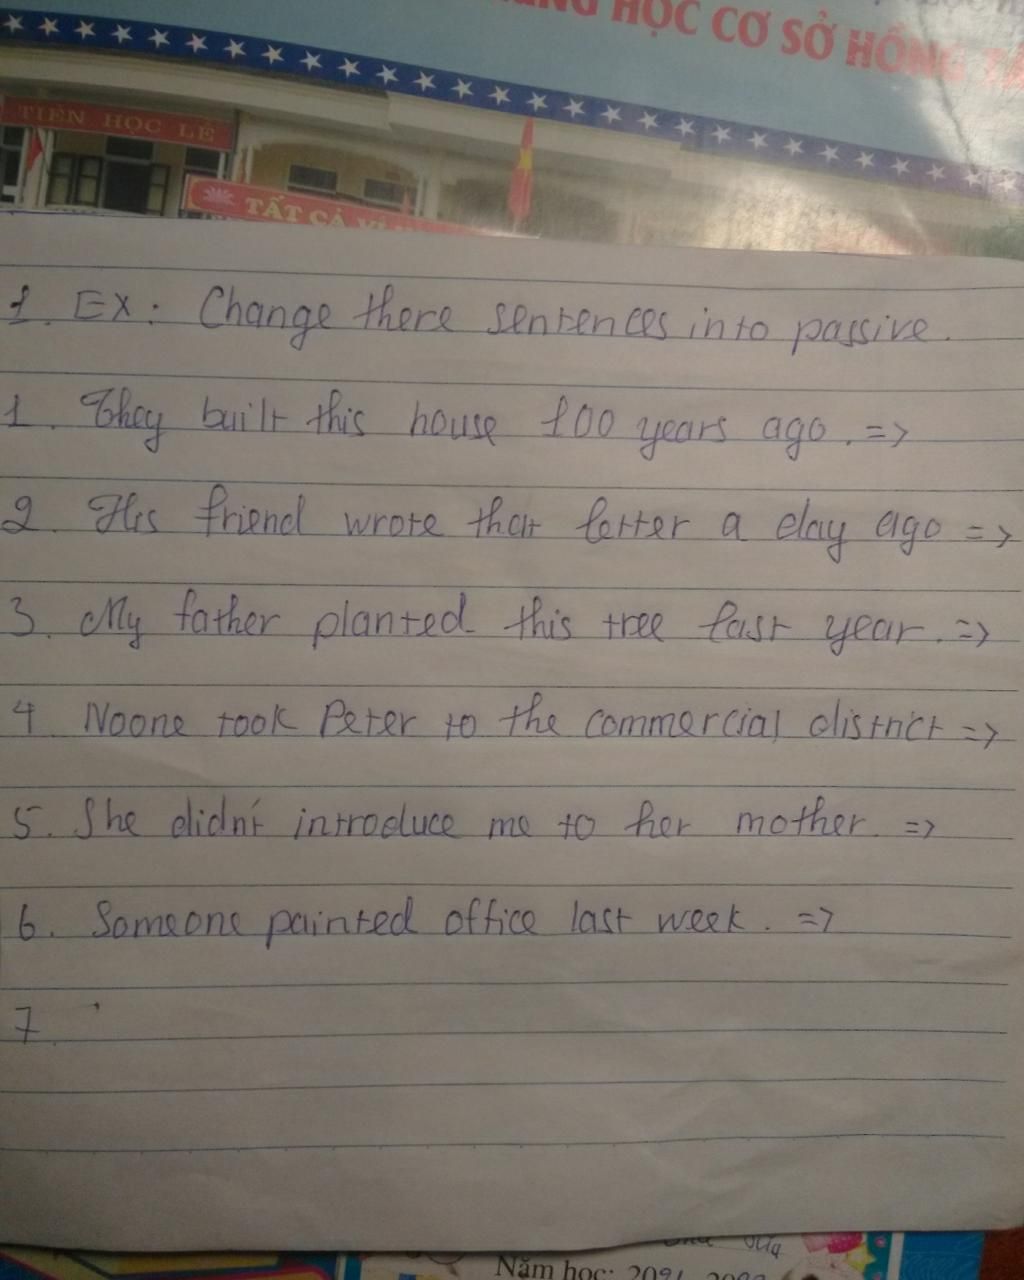 HỌC CƠ SỞ HỒNG
TIÊN HỌC LỄ
TẤT CẢ VÌ
1. EX: Change there sentences into passive.
1. They built this house 100 years ago. =>
2. His friend wrote that letter a day ago =>
3. My father planted this tree last year. =>
4 Noone took Peter to the commercial district =>
5. She didn't introduce me to her mother. =>
6. Someone painted office last week. =>
7
Năm học: